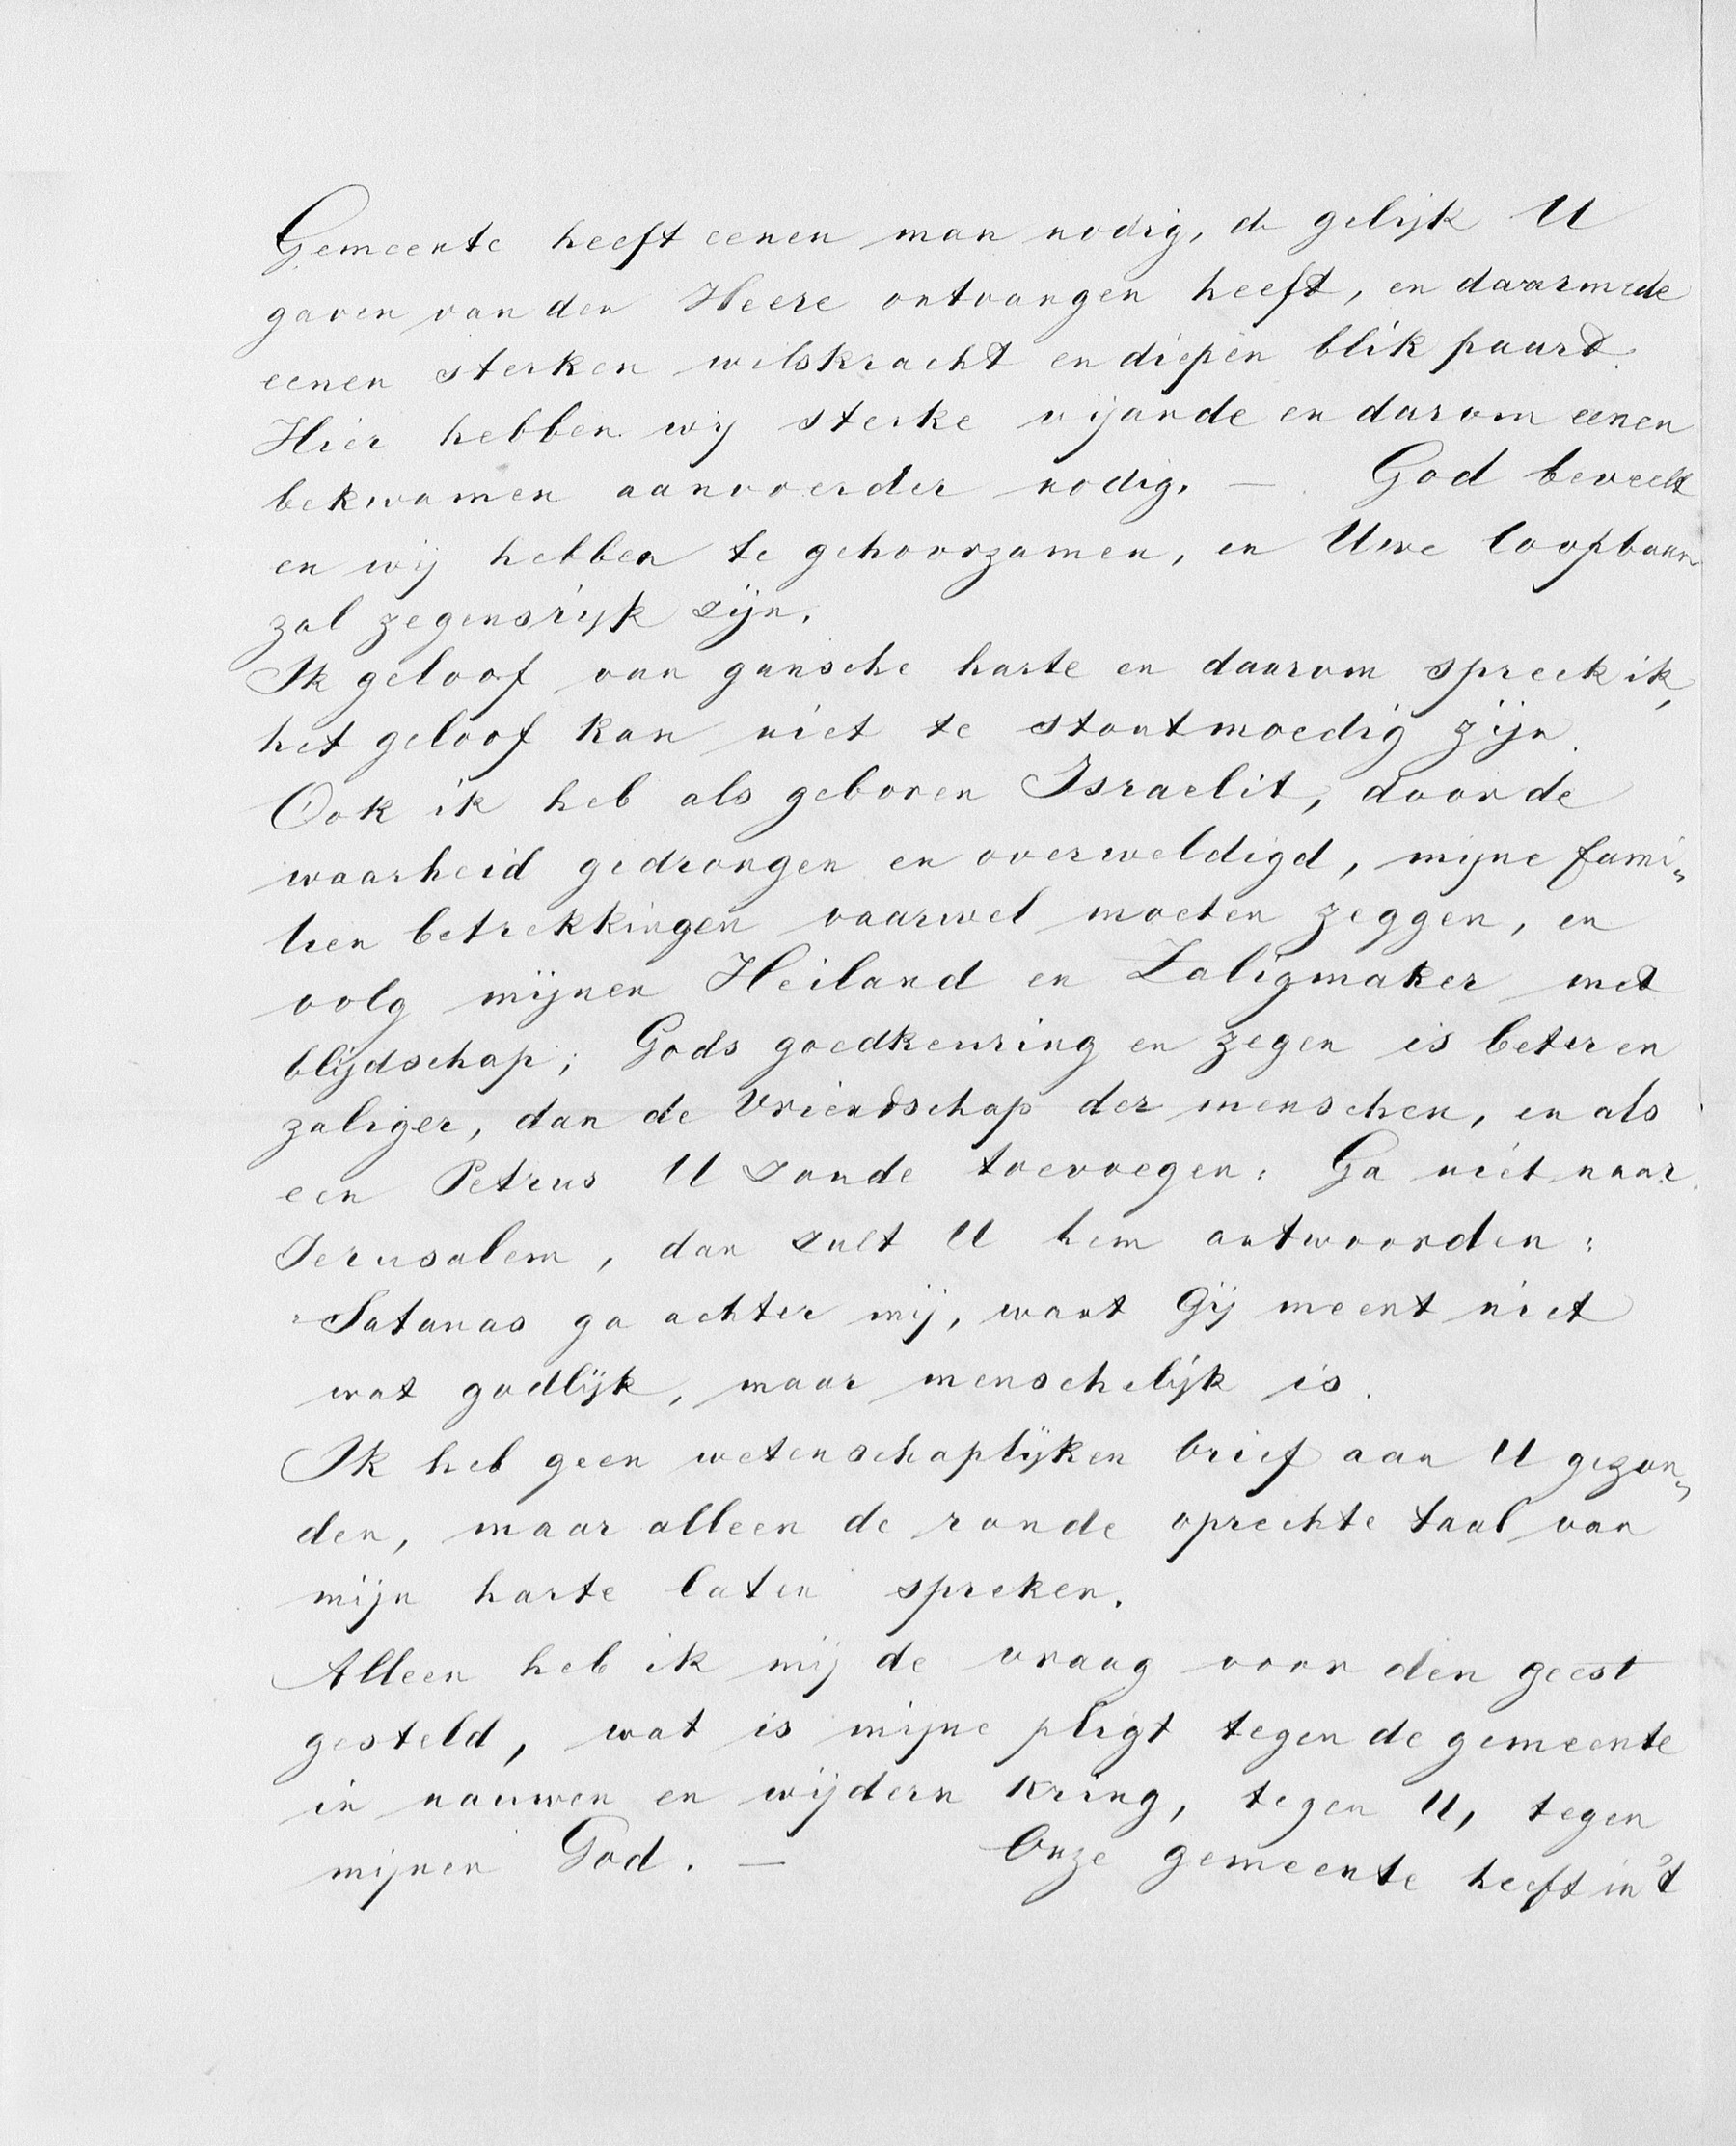 Gemeente heeft eenen man nodig, d gelijk U
gaven van den Heere ontvangen heeft, en daarmede
eenen sterken wilskracht en diepen blik paard.
Hier hebben wij sterke vijande en darom eenen
bekwamen aanvoerder nodig. — God beveelt
en wij hebben te gehoorzamen, en Uwe loopbaan
zal zegensrijk zijn.
Ik geloof van gansche harte en daarom spreek ik,
het geloof kan niet te stoutmoedig zijn.
Ook ik heb als geboren Israelit, door de
waarheid gedrongen en overweldigd, mijne fami„
lien betrekkingen vaarwel moeten zeggen, en
volg mijnen Heiland en Zaligmaker met
blijdschap; Gods goedkeuring en zegen is beter en
zaliger, dan de Vriendschap der menschen, en als
een Petrus U zonde toevoegen: Ga niet naar
Jerusalem, dan zult U hem antwoorden:
"Satanas ga achter mij, want Gij meent niet
wat godlijk, maar menschelijk is.
Ik heb geen wetenschaplijken brief aan U gezon„
den, maar alleen de ronde oprechte taal van
mijn harte laten spreken.
Alleen heb ik mij de vraag voor den geest
gesteld, wat is mijne pligt tegen de gemeente
in nauwen en wijdern kring, tegen U, tegen
mijnen God. — Onze gemeente heeft in 't